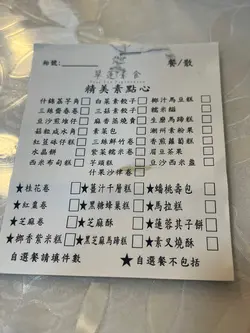 枱號:______ 餐/散
草蓮素食
精美素點心
什錦荔芋角 □ 白菜素餃子 □ 椰汁馬豆糕 □
三絲齋春卷 □ 三菇素餃子 □ 糯米糍 □
豆沙煎堆仔 □ 麻香蒸燒賣 □ 生磨馬蹄糕 □
菇粒咸水角 □ 素菜包 □ 潮州素粉果 □
紅荳砵仔糕 □ 三絲鮮竹卷 □ 香煎蘿蔔糕 □
水晶餅 □ 紫菜糯米卷 □ 眉豆茶果 □
西米布甸糕 □ 芋頭糕 □ 豆沙西米盞 □
什果沙律卷 □
★桂花卷 □ ★薑汁千層糕 □ ★蟠桃壽包 □
★紅棗卷 □ ★黑糖蜂巢糕 □ ★馬拉糕 □
★芝麻卷 □ ★芝麻酥 □ ★蓮蓉其子餅 □
★椰香紫米糕 □ ★黑芝麻馬蹄糕 □ ★素叉燒酥 □
自選餐請填件數 ★自選餐不包括